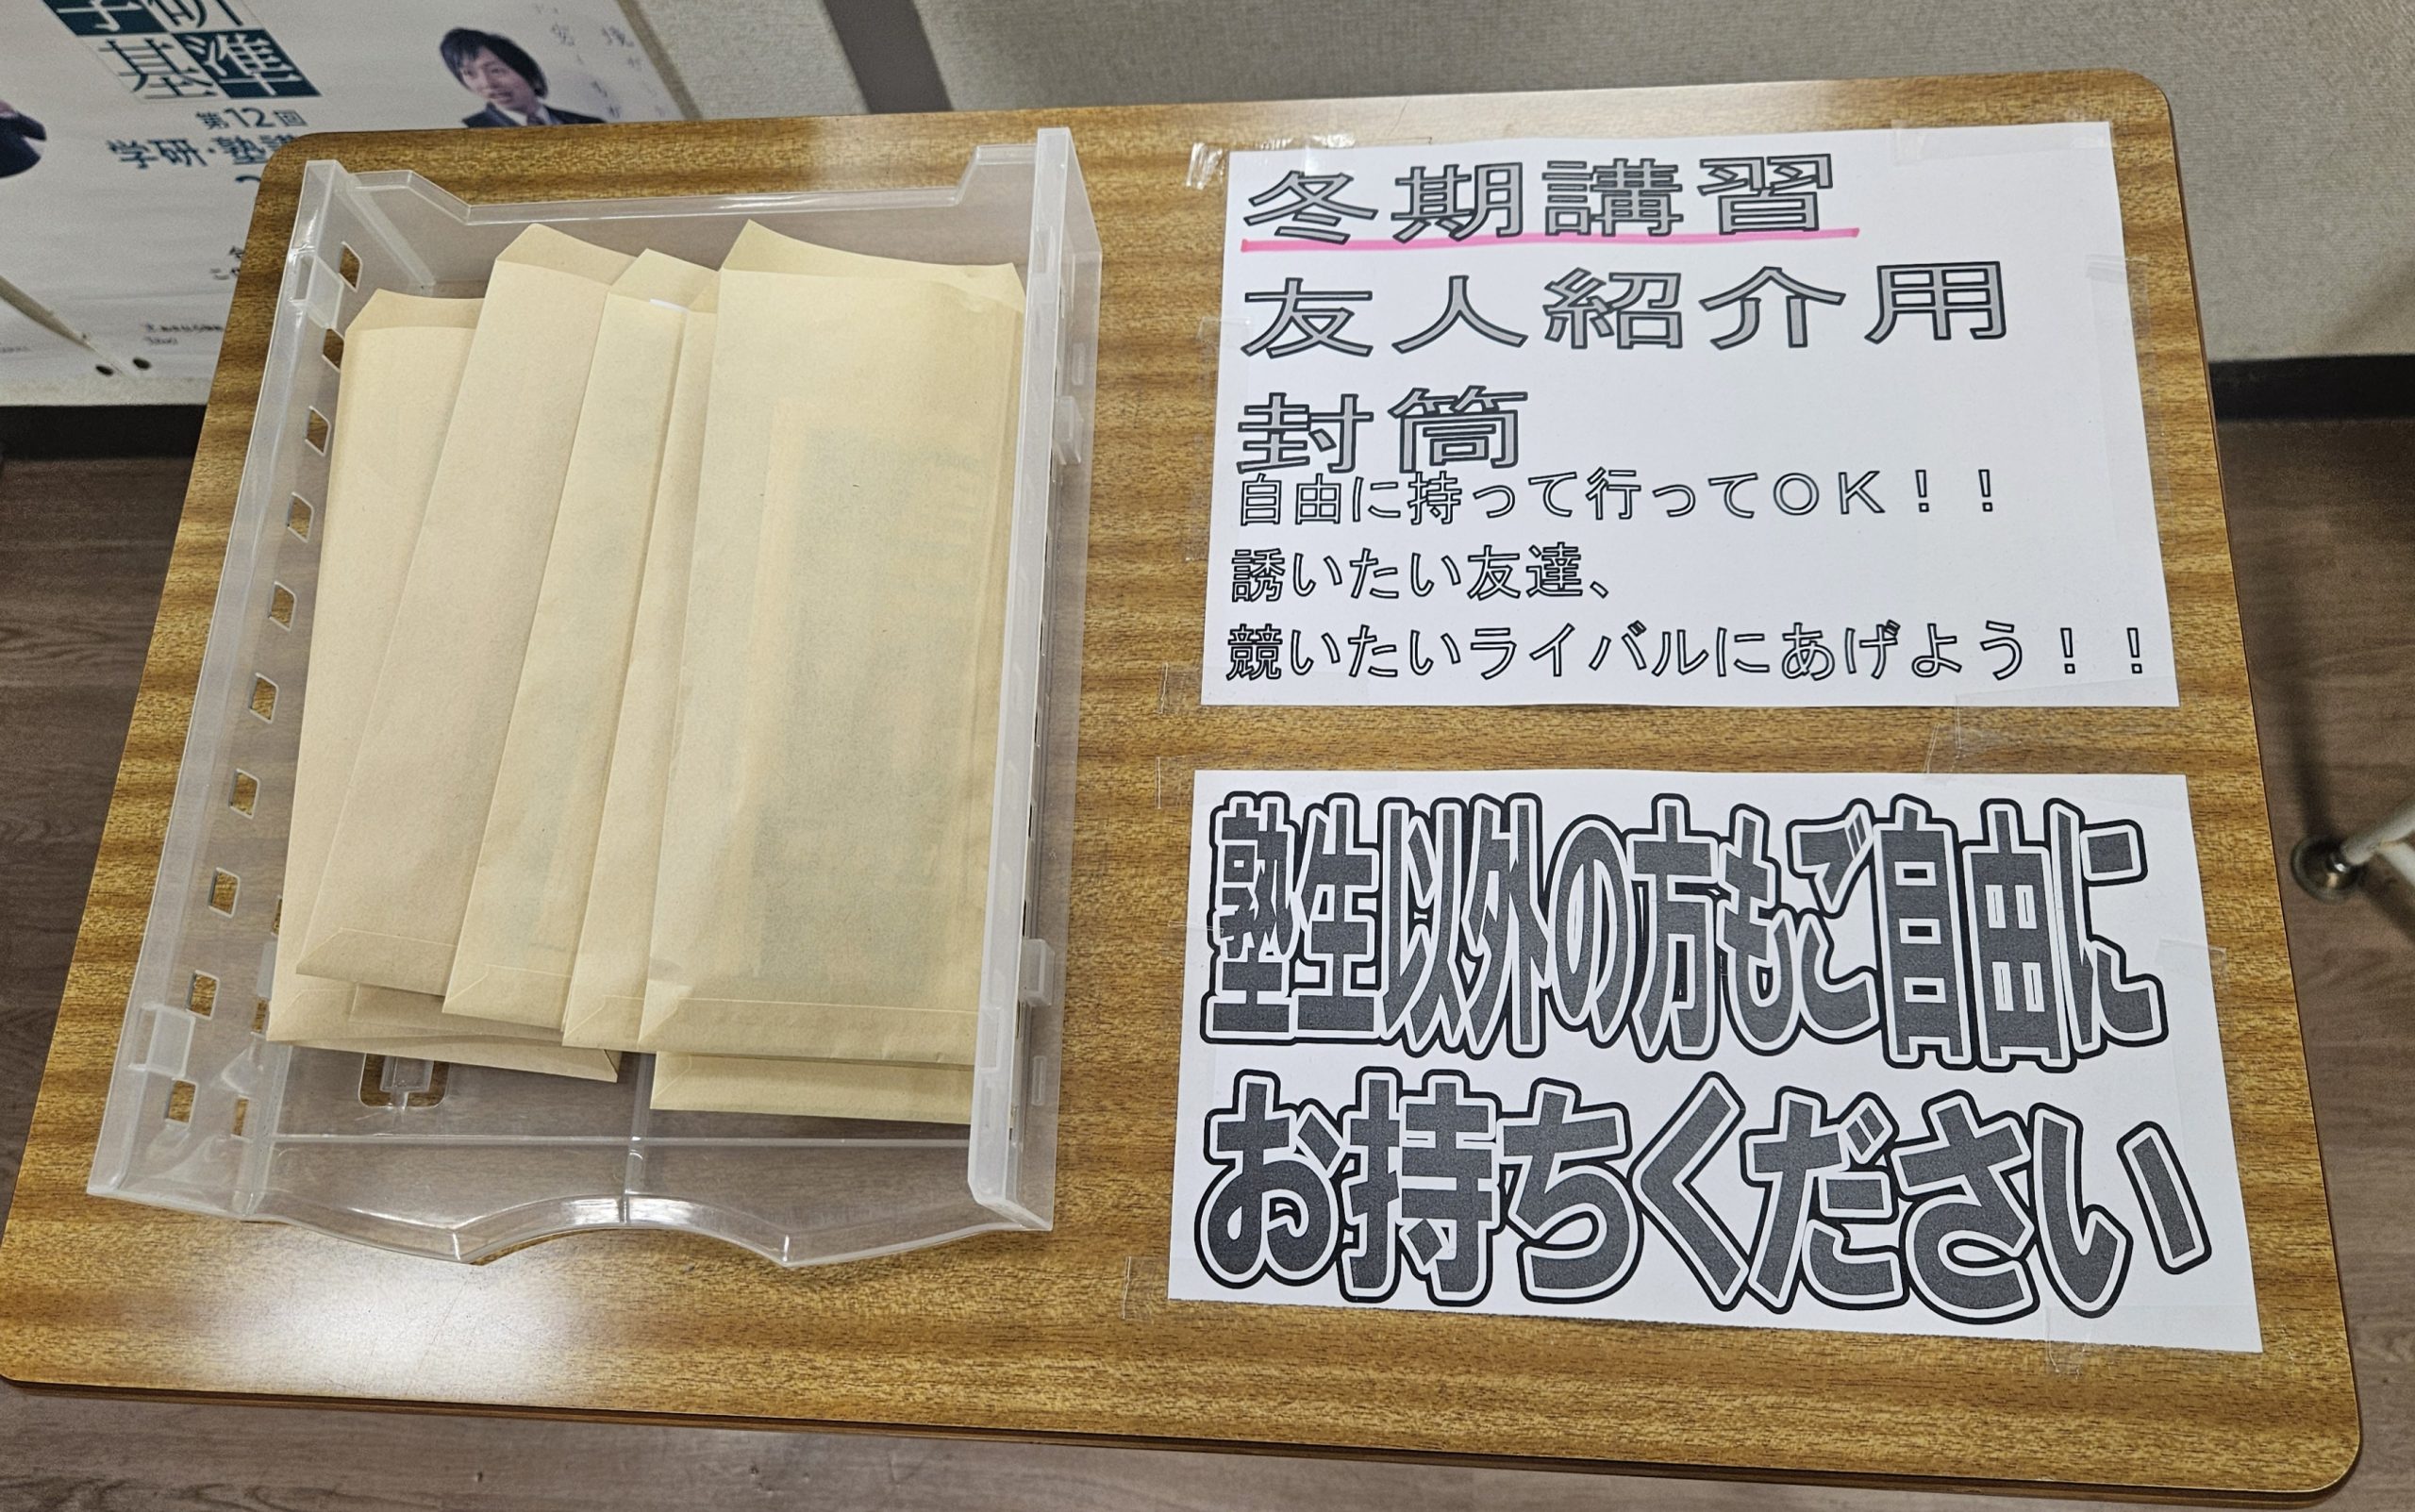 学研
基準
第12回
学研・塾講
冬期講習
友人紹介用
封筒
自由に持って行ってＯＫ！！
誘いたい友達、
競いたいライバルにあげよう！！
塾生以外の方もご自由に
お持ちください